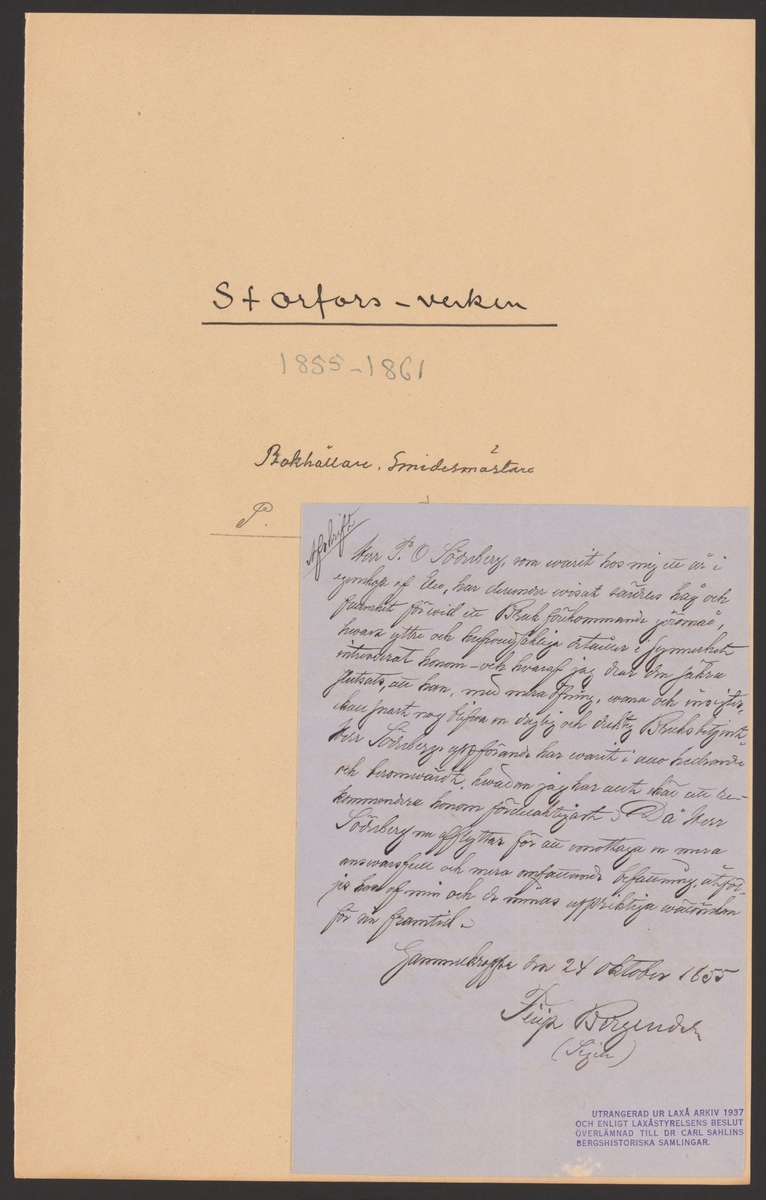 Storfors-verken
1855-1861
Bokhållare, Smidesmästare
P.
Afskrift
Herr P. O Söderberg, som warit hos mig ett år i
egenskap af Elev, har derunder wisat särdeles håg och
för wid ett Bruk förekommande göromål,
hwars yttre och detailer i synnerhet
intresserat honom – och hvaraf jag drar den säkra
slutsats, att han, med mera öfning, wana och insigter,
skall snart nog blifva en duglig och Brukstjenst-
Herr Söderbergs uppförande har warit i allo hedrande
och berömwärdt, hwadan jag har allt skäl att re-
kommendera honom fördelaktigast; Då Herr
Söderberg nu afflyttar för att emottaga en mera
answarsfull och mera omfattande befattning, åtföl-
jes han af min och de minas uppriktiga wälönskan
för en framtid.
Gammelkroppa den 24 Oktober 1855
Filip Bergendal
UTRANGERAD UR LAXÅ ARKIV 1937
OCH ENLIGT LAXÅSTYRELSENS BESLUT
ÖVERLÄMNAD TILL DR CARL SAHLINS
BERGSHISTORISKA SAMLINGAR.